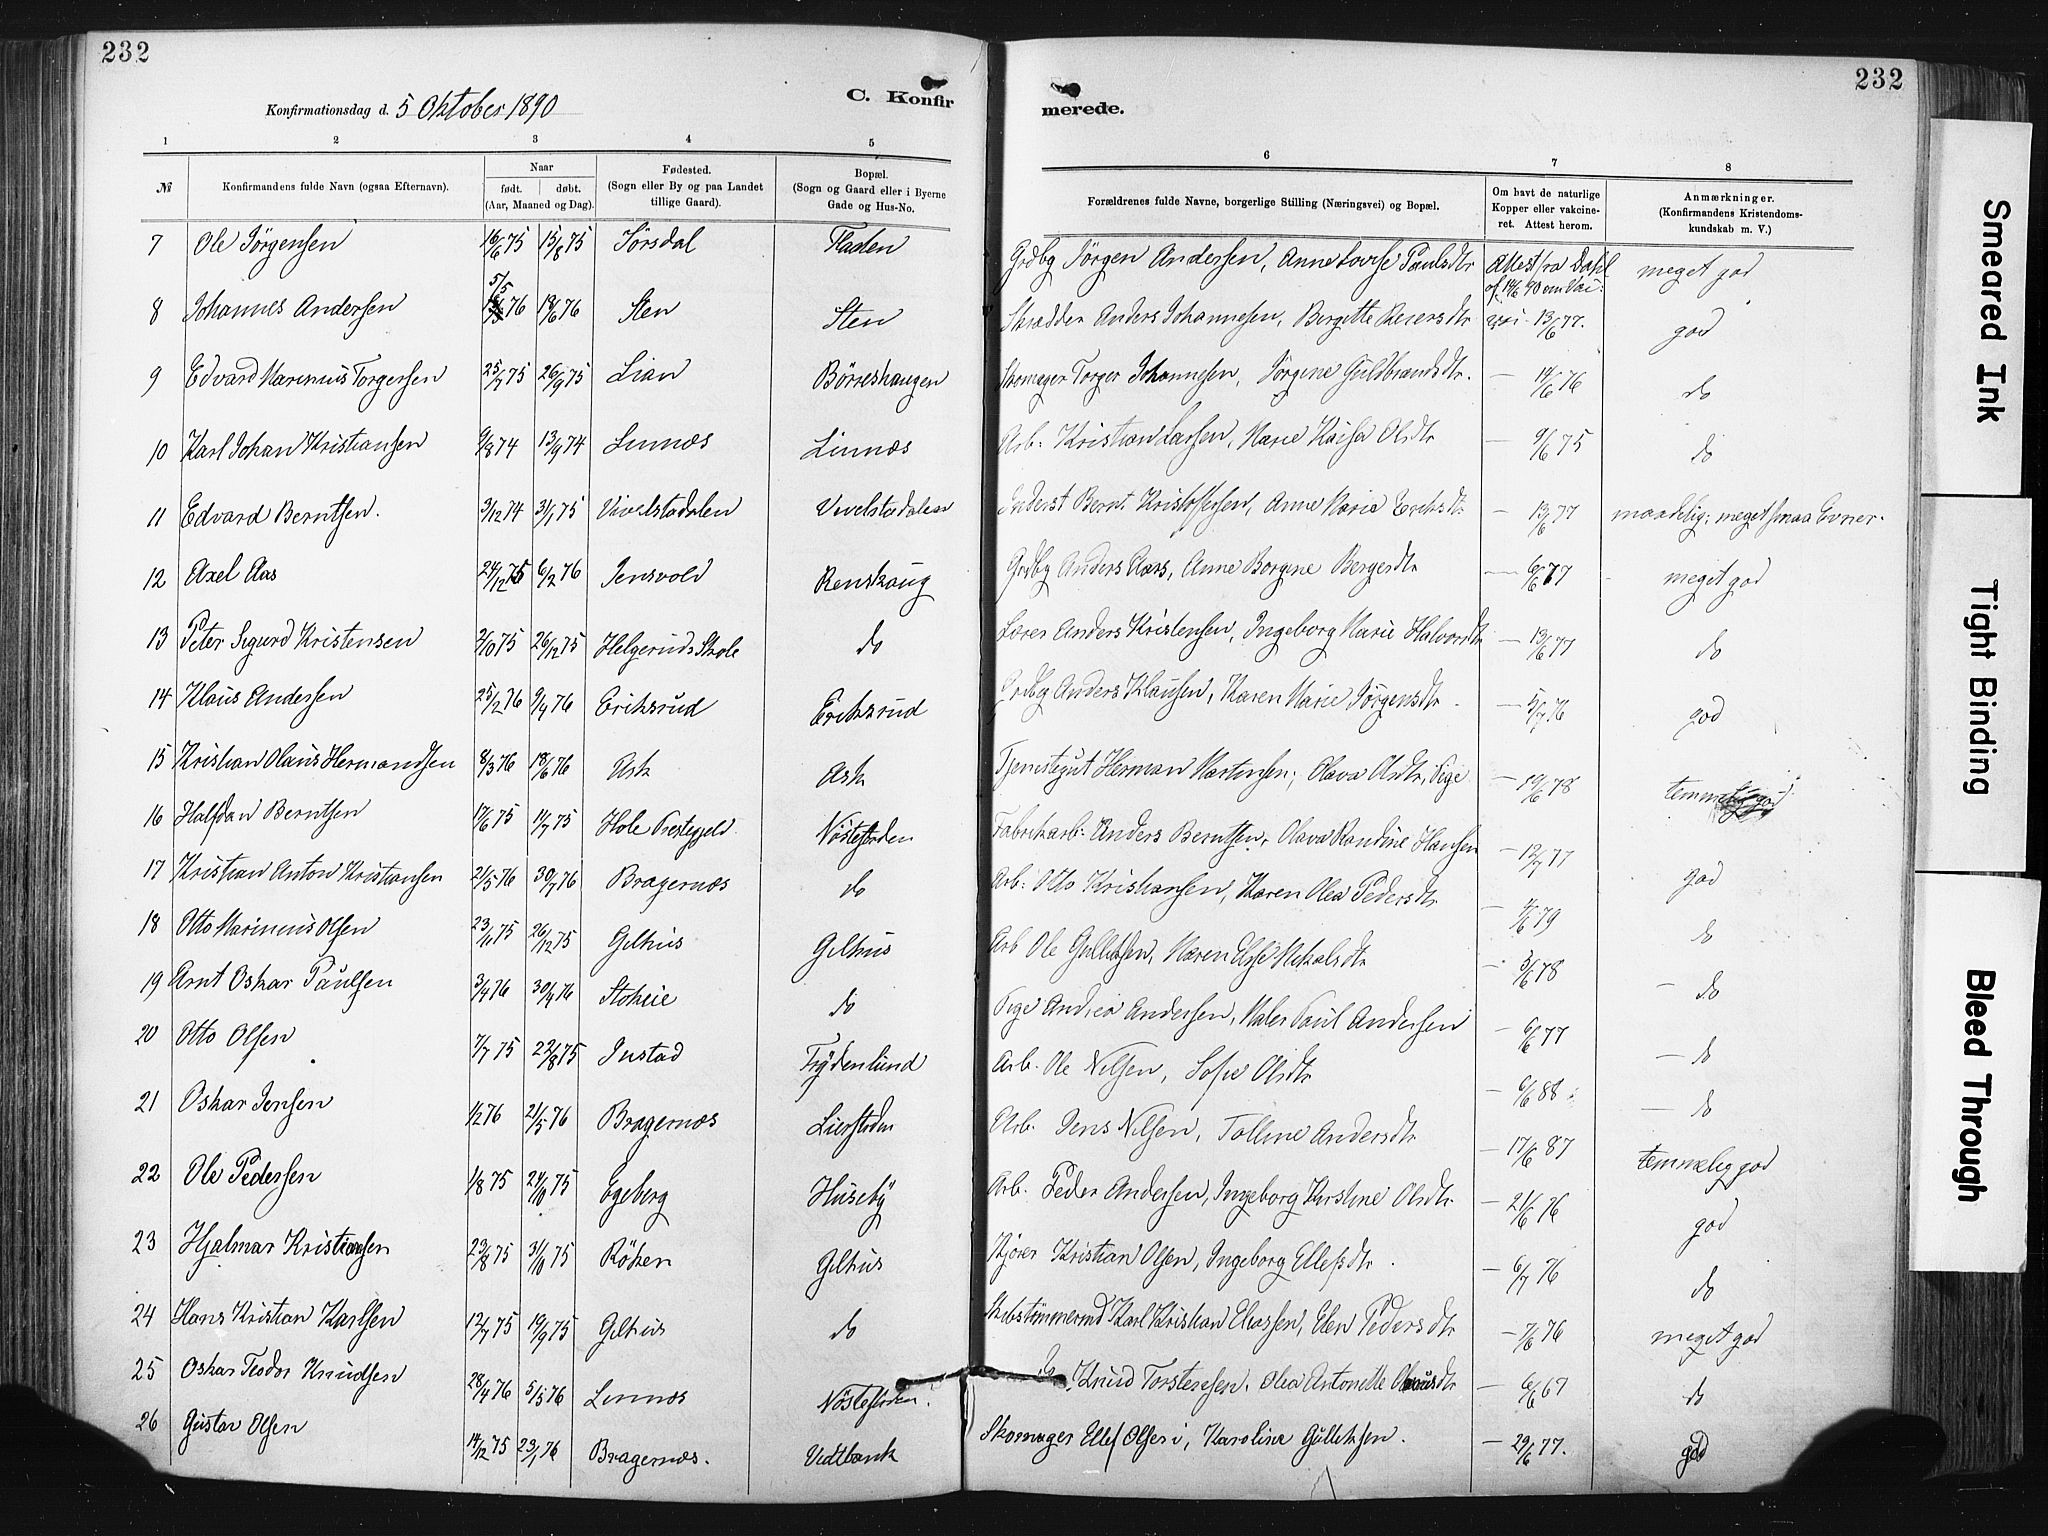 232
232
Konfirmationsdag d. 5 Oktober 1890
C. Konfir
merede.
1 2 3 4 5 6 7 8
№ Konfirmandens fulde Navn (ogsaa Efternavn). Naar født. døbt. (Aar, Maaned og Dag). Fødested. (Sogn eller By og paa Landet tillige Gaard). Bopæl. (Sogn og Gaard eller i Byerne Gade og Hus-No. Forældrenes fulde Navne, borgerlige Stilling (Næringsvei) og Bopæl. Om havt de naturlige Kopper eller vakcineret. Attest herom. Anmærkninger. (Konfirmandens Kristendomskundskab m. V.)
7 Ole Jörgensen 16/6 75 15/8 75 Jörsdal Grdbg Jörgen Andersen, Anne Lovise Paulsdtr Attest fra Dahl af 14/6 90 om Vac: meget god
8 Johannes Andersen 5/5 76 18/6 76 Sten Sten Skrædder Anders Johannesen, Bergitte 13/6 77. god
9 Edvard Marinius Torgersen 25/7 75 26/9 75 Lian Börreshaugen Skomager Torger Johannesen, Jörgine Guldbrandsdtr. — 14/6 76 do
10 Karl Johan Kristiansen 9/8 74 13/9 74 Linnæs Linnæs Arb. Kristian Larsen, Marie Kaisa Olsdtr — 9/6 75 do
11 Edvard Berntsen. 3/12 74 31/1 75 Vivelstadalen Vivelstadalen Inderst Bernt Kristoffersen, Anne Marie Eriksdtr — 13/6 77 maadelig; meget smaa Evner.
12 Axel Aas 24/12 75 6/2 76 Jensvold Renskaug Grdbg Anders Aars, Anne Borgine Bergersdtr — 6/6 77 meget god
13 Peter Sigurd Kristensen 2/10 75 26/12 75 Helgeruds Skole do Lærer Anders Kristensen, Ingeborg Marie Halvorsdtr — 13/6 77 do
14 Klaus Andersen 25/2 76 9/4 76 Eriksrud Eriksrud Grdbg Anders Klausen, Karen Marie Jörgensdtr. — 5/7 76 god
15 Kristian Olaus Hermandsen 8/3 76 18/6 76 Ask Ask Tjenestegut Herman Martinsen; Olava Olsdtr, Pige — 19/6 78 temmelig god
16 Halfdan Berntsen 17/6 75 11/7 75 Hole Prestegjeld Nöstefjorden Fabrikarb. Anders Berntsen, Olava Randine Hansen — 12/7 77 god
17 Kristian Anton Kristiansen 21/5 76 30/7 76 Bragernæs do Arb: Otto Kristiansen, Karen Olea Pedersdtr — 79 do
18 Otto Marinius Olsen 23/11 75 26/12 75 Gilhus Gilhus Arb Ole Gulliksen, Maren Else Nikolsdtr — 3/6 78 — do
19 Arnt Oskar Paulsen 3/4 76 30/4 76 Stokeie do Pige Andrea Andersen, Maler Paul Andersen — 6/6 77 — do
20 Otto Olsen 7/7 75 22/8 75 Justad Frydenlund Arb. Ole Nilsen, Sofie Olsdtr — 6/6 88 — do
21 Oskar Jensen 1/2 76 21/5 76 Bragernæs Lierstranden Arb. Jens Nilsen, Talline Andersdtr — 17/6 87 temmelig god
22 Ole Pedersen 1/8 75 24/10 75 Egeberg Huseby Arb. Peder Andersen, Ingeborg Kirstine Olsdtr — 21/6 76 god
23 Hjalmar Kristiansen 23/8 75 31/10 75 Röken Gilhus Kjörer Kristian Olsen, Ingeborg Ellefsdtr. — 6/7 76 do
24 Hans Kristian Karlsen 12/7 75 19/9 75 Gilhus do Skibstömmermd Karl Kristian Eliassen, Elen Pedersdtr — 7/6 76 meget god
25 Oskar Teodor Knudsen 28/4 76 5/5 76 Linnæs Knud Torstensen, Olea Antonette Olausdtr — 6/6 67 do
26 Gustav Olsen 14/12 75 23/1 76 Bragernæs. Vedtbank Skomager Ellef Olsen, Karoline Gulliksen. — 29/6 77. god
Smeared Ink
Tight Binding
Bleed Through